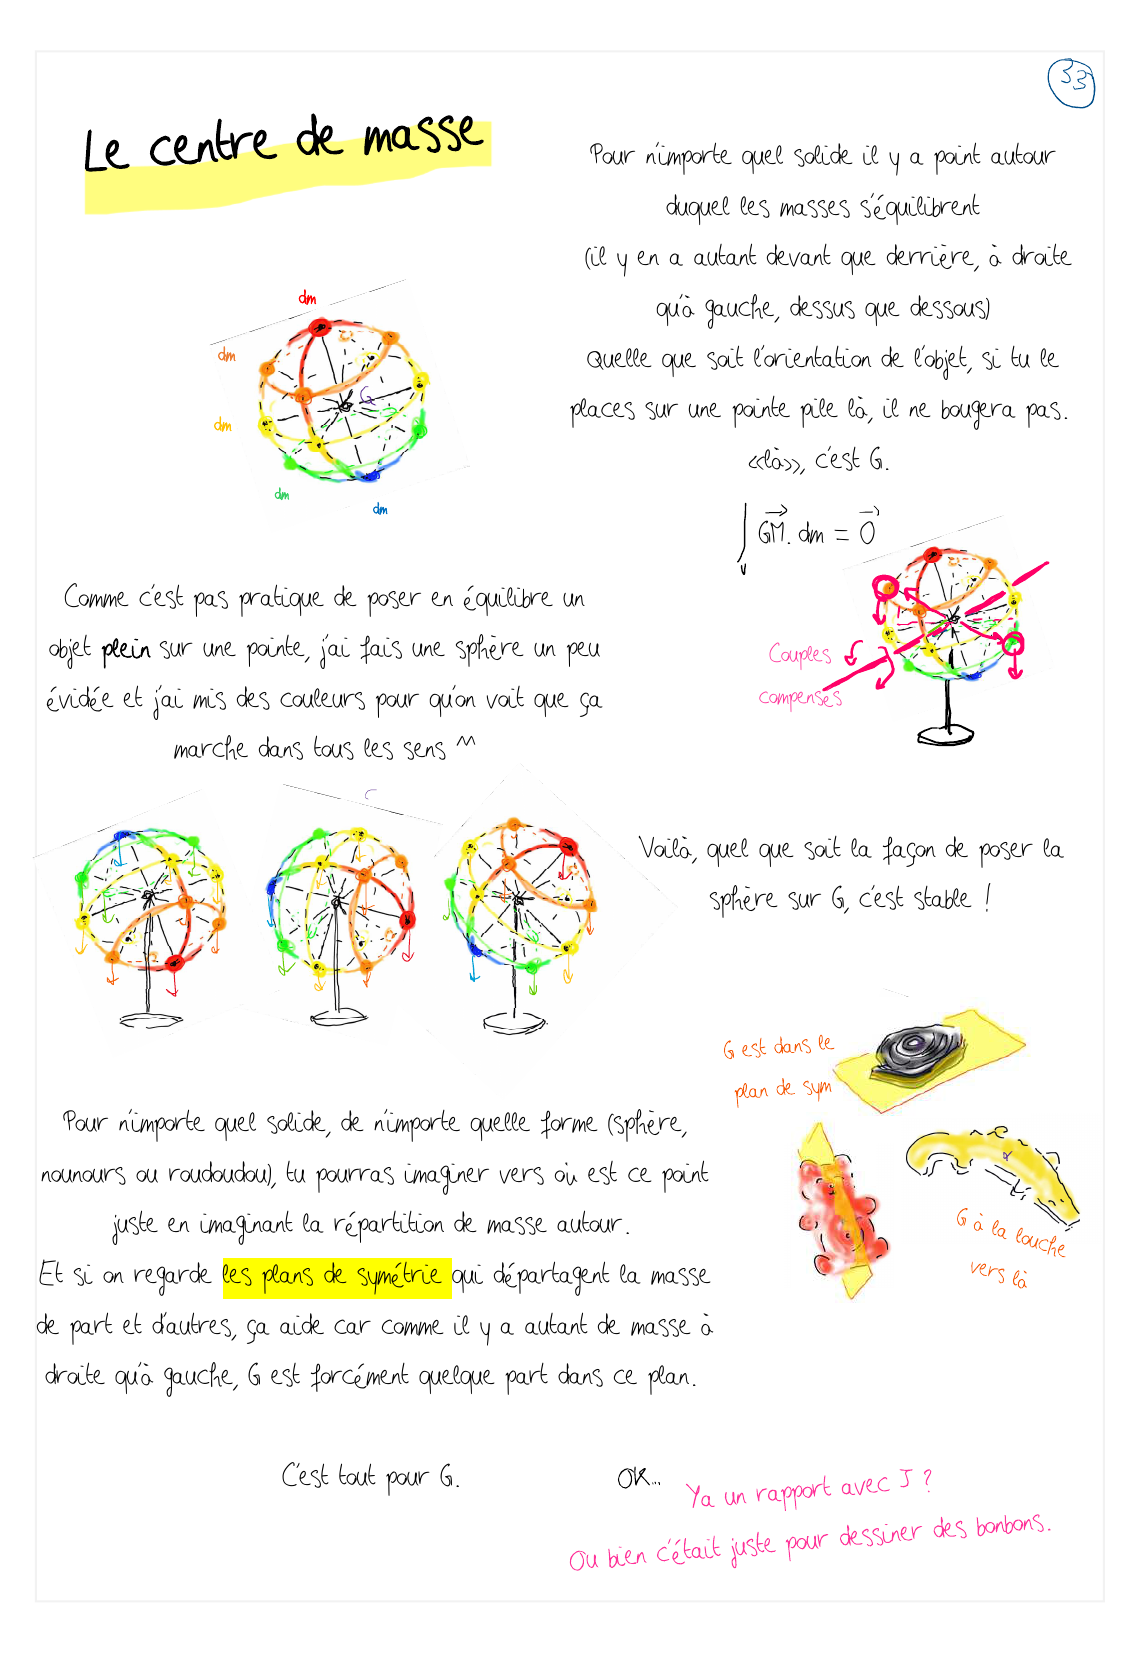 33
Le centre de masse
Pour n'importe quel solide il y a point autour
duquel les masses s'équilibrent
(il y en a autant devant que derrière, à droite
qu'à gauche, dessus que dessous)
Quelle que soit l'orientation de l'objet, si tu le
places sur une pointe pile là, il ne bougera pas.
«là», c'est G.
∫ GM⃗. dm = 0⃗
dm
dm
dm
dm
dm
G
Couples
compensés
Comme c'est pas pratique de poser en équilibre un
objet plein sur une pointe, j'ai fais une sphère un peu
évidée et j'ai mis des couleurs pour qu'on voit que ça
marche dans tous les sens ^^
Voilà, quel que soit la façon de poser la
sphère sur G, c'est stable !
G est dans le
plan de sym
G à la louche
vers là
Pour n'importe quel solide, de n'importe quelle forme (sphère,
nounours ou roudoudou), tu pourras imaginer vers où est ce point
juste en imaginant la répartition de masse autour.
Et si on regarde les plans de symétrie qui départagent la masse
de part et d'autres, ça aide car comme il y a autant de masse à
droite qu'à gauche, G est forcément quelque part dans ce plan.
C'est tout pour G.
OK...
Ya un rapport avec J ?
Ou bien c'était juste pour dessiner des bonbons.